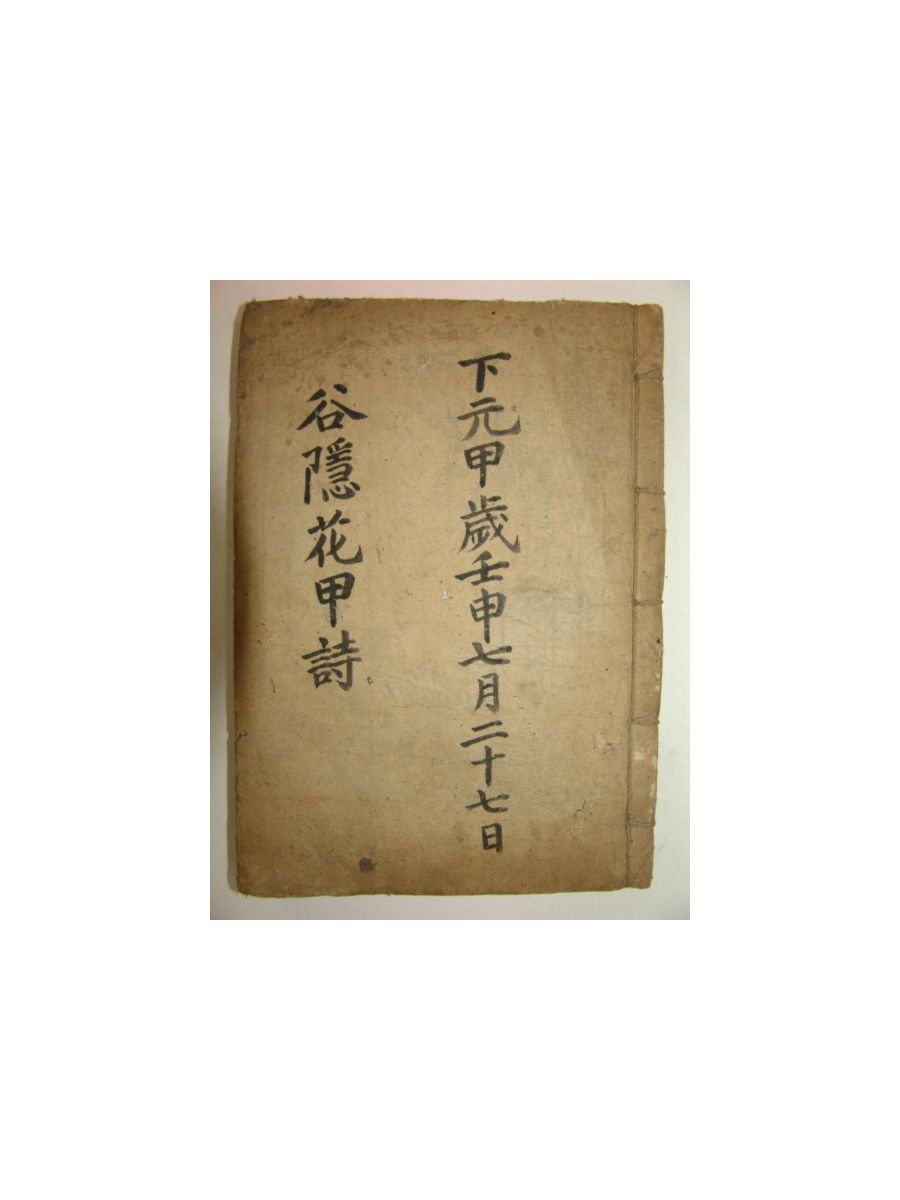 下元甲歲壬申七月二十七日
谷隱花甲詩